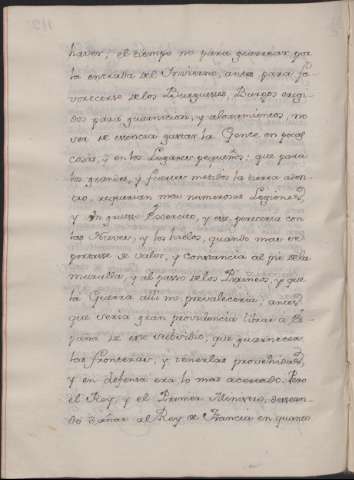 haver; el tiempo no para guerrear por
la entrada del Invierno, antes para fa
vorecerse de los Burgueses, Burgos
para guarnicion, y alojamientos, no
ver se gastar la Gente, en pocas
cosas, y en los Lugares pequeños: que para
los grandes, y fuertes metidos la tierra aden-
tro, requerian mas numerosas Legiones,
y un grueso Exercito, y este pereceria con
las Nieves, y los hielos, quando mas se
de valor, y constancia al pie de la
muralla, y al passo de los Pirineos, y que
la Guerra alli no prevaleceria, antes
que seria gran providencia librar a Es
paña de este que guarnecer
las fronteras, y tenerlas provehidas,
y en defensa era lo mas acertado. Pero
el Rey, y el Primer Ministro, desean-
do dañar al Rey de Francia en quanto